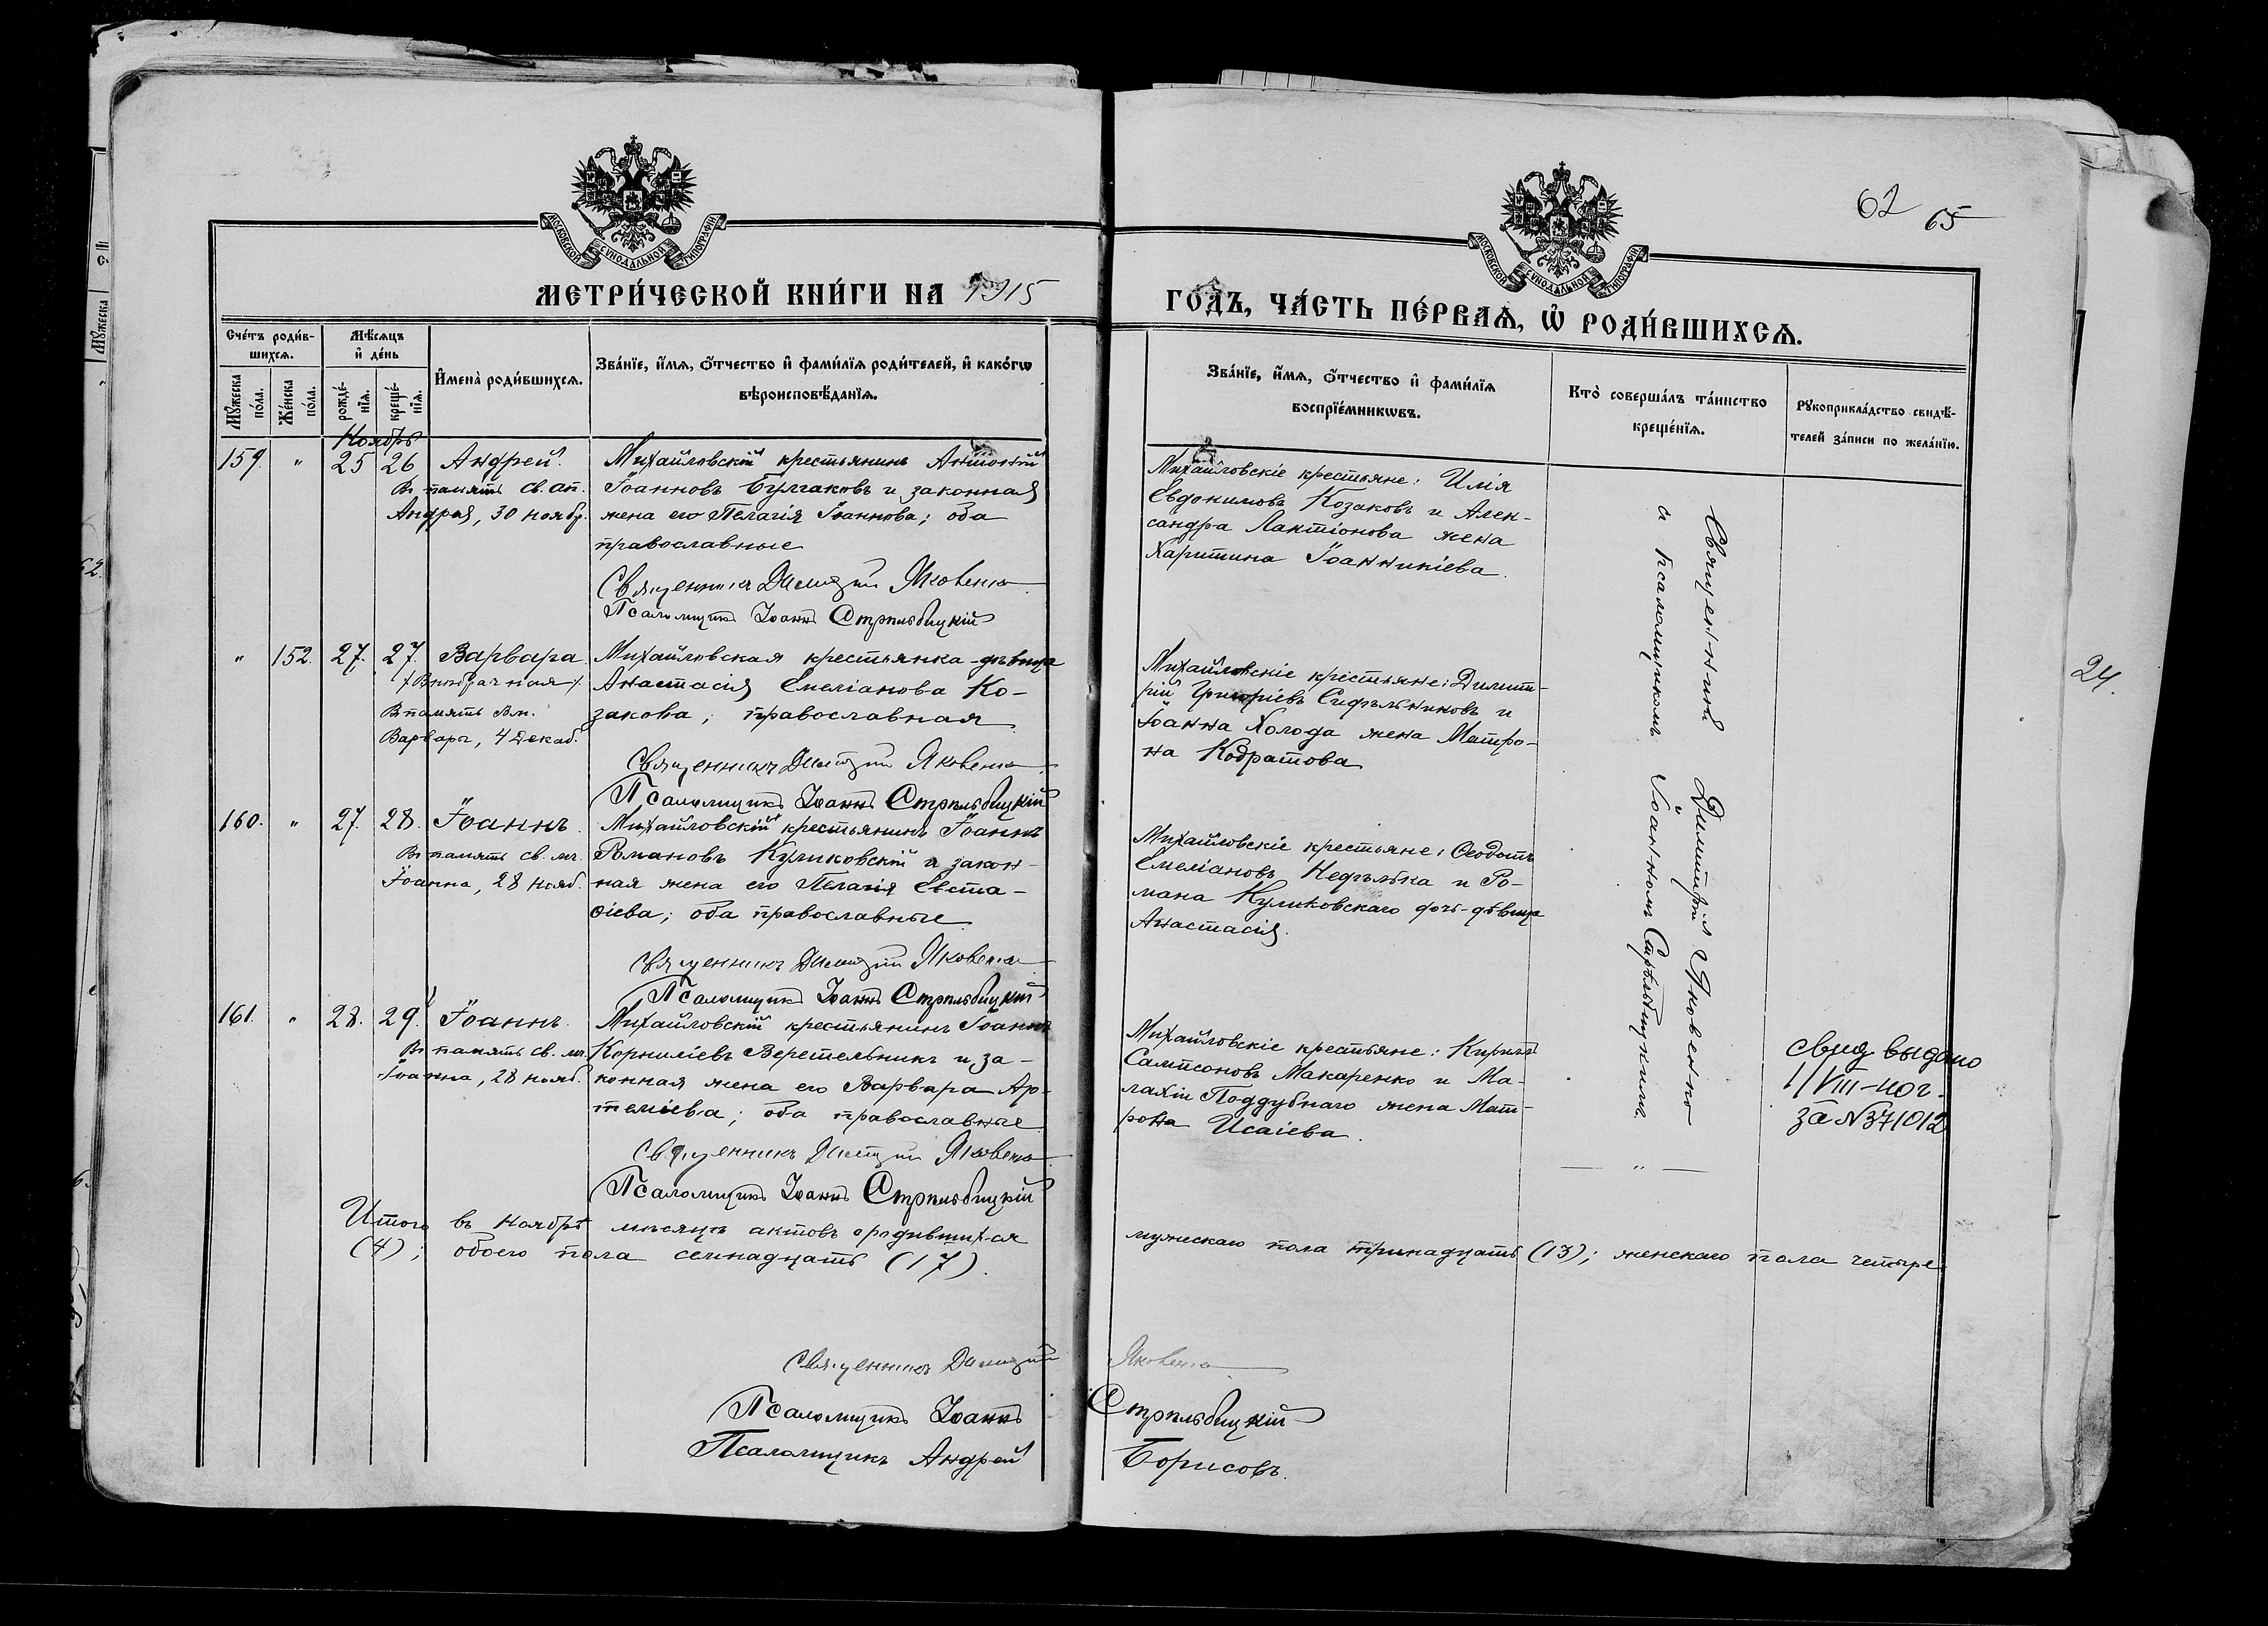 62 65
МОСКОВСКОЙ СѴНОДАЛЬНОЙ ТИПОГРАФІИ
МОСКОВСКОЙ СѴНОДАЛЬНОЙ ТИПОГРАФІИ
МЕТРИ́ЧЕСКОЙ КНИ́ГИ НА 1915
ГОДЪ, ЧА́СТЬ ПЕ́РВАѦ, Ѡ҆ РОДИ́ВШИХСѦ.
Сче́тъ роди́в-
шихсѧ.
Мѣ́сѧцъ
и҆ де́нь
Мꙋ́жеска по́ла.
Же́нска по́ла.
рожде́-
нїѧ.
креще́-
нїѧ.
И҆мена̀ роди́вшихсѧ.
Зва́нїе, и҆́мѧ, ѻ҆́тчество и҆ фами́лїѧ роди́телей, и҆ како́гѡ
вѣроисповѣ́данїѧ.
Зва́нїе, и҆́мѧ, ѻ҆́тчество и҆ фами́лїѧ
воспрїе́мникѡвъ.
Кто̀ соверша́лъ та́инство
креще́нїѧ.
Рꙋкоприкла́дство свидѣ́-
телей за́писи по жела́нїю.
Ноябрь
159. " 25 26 Андрей.
Въ память св. ап.
Андрея, 30 ноябр.
Михайловскій крестьянинъ Антоній
Іоанновъ Булгаковъ и законная
жена его Пелагія Іоаннова; оба
православные
Священникъ Димитрій Яковенко
Псаломщикъ Іоаннъ Стрѣльбицкій
Михайловскіе крестьяне: Илія
Евдокимовъ Козаковъ и Алек-
сандра Лактіонова жена
Харитина Іоанникіева.
" 152. 27. 27. Варвара
(Внѣбрачная).
Въ память Вм.
Варвары, 4 Декаб.
Михайловская крестьянка-дѣвица
Анастасія Емеліанова Ко-
закова; православная
Священникъ Димитрій Яковенко
Псаломщикъ Іоаннъ Стрѣльбицкій
Михайловскіе крестьяне: Димит-
рій Григоріевъ Сидѣльниковъ и
Іоанна Холода жена Матро-
на Кодратова
160. " 27. 28. Іоаннъ.
Въ память св. мч.
Іоанна, 28 нояб.
Михайловскій крестьянинъ Іоаннъ
Романовъ Куликовскій и закон-
ная жена его Пелагія Евста-
фіева; оба православные
Священникъ Димитрій Яковенко
Псаломщикъ Іоаннъ Стрѣльбицкій
Михайловскіе крестьяне: Ѳеодотъ
Емеліановъ Недѣлька и Ро-
мана Куликовскаго дочь-дѣвица
Анастасія.
161. " 28. 29. Іоаннъ.
Въ память св. мч.
Іоанна, 28 нояб.
Михайловскій крестьянинъ Іоаннъ
Корниліевъ Веретельникъ и за-
конная жена его Варвара Ар-
теміева; оба православные
Священникъ Димитрій Яковенко
Псаломщикъ Іоаннъ Стрѣльбицкій
Михайловскіе крестьяне: Кириллъ
Сампсоновъ Макаренко и Ма-
лахіи Поддубнаго жена Мат-
рона Исаіева.
Священникъ Димитрій Яковенко
съ псаломщикомъ Іоанномъ Стрѣльбицкимъ.
— " —
свид выдано
1/VIII-40г.
за №371012
Итого въ Ноябрѣ мѣсяцѣ актовъ о родившихся мужескаго пола тринадцать (13); женскаго пола четыре
(4); обоего пола семнадцать (17).
Священникъ Димитрій Яковенко
Псаломщикъ Іоаннъ Стрѣльбицкій
Псаломщикъ Андрей Борисовъ.
24.